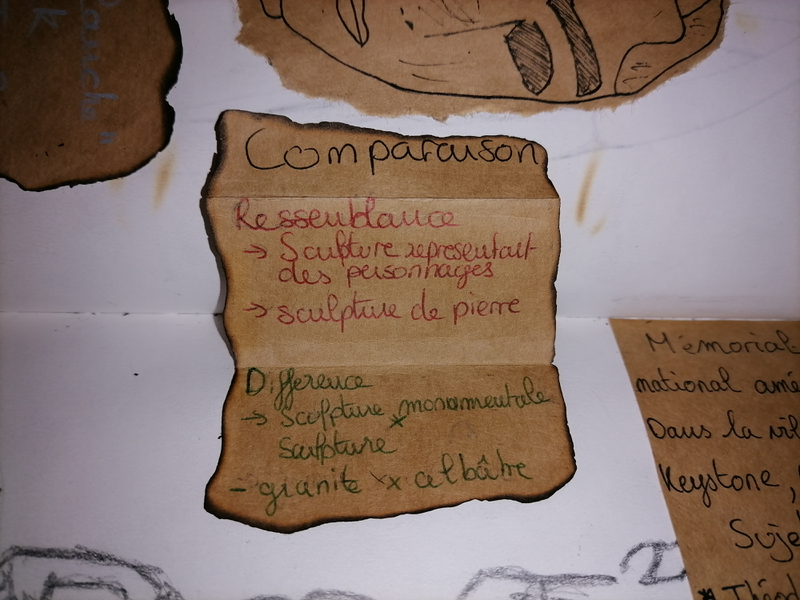 Comparaison
Ressemblance
→ Sculpture representait
des personnages
→ sculpture de pierre
Difference
→ Sculpture monumentale
x sculpture
- granite x albâtre
Mémorial
national amé
Dans la vil
Keystone,
Suje
* Théod